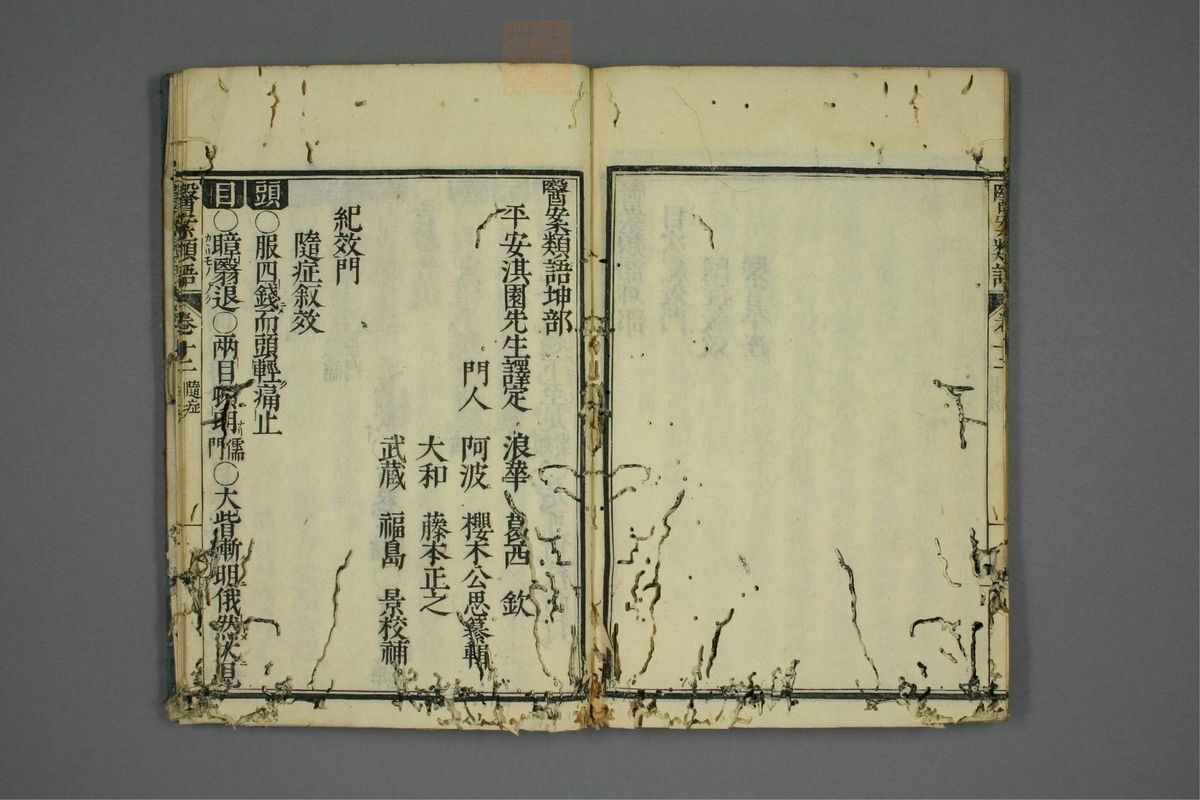 醫案類語坤部
平安淇園先生譯定 浪華 葛西 欽
門人 阿波 櫻木公思纂輯
大和 藤本正之
武蔵 福島 景校補
紀效門
隨症叙效
頭○服四錢而頭輕痛止
目○瞕翳退○兩目頓明儒門○大眥漸明俄然大見
醫案類語 卷十二 隨症
醫案類語 卷十二